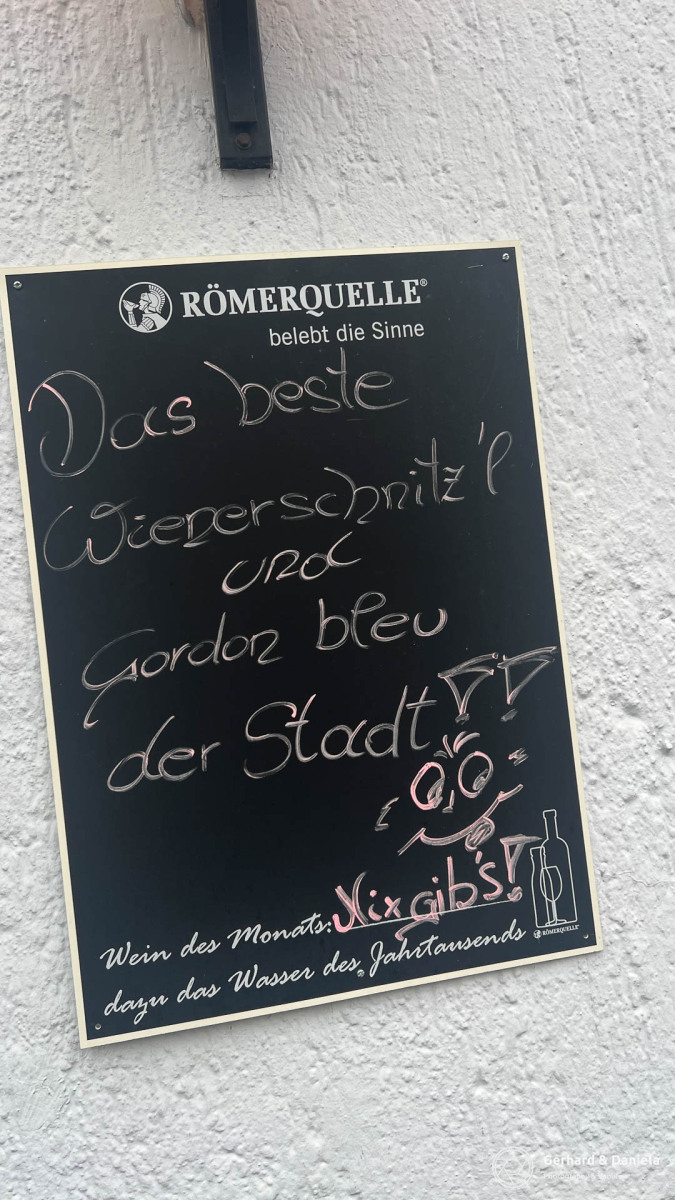 RÖMERQUELLE®
belebt die Sinne
Das beste
Wienerschnitz'l
und
Gordon bleu
der Stadt!!
Wein des Monats: Nix gib's!
dazu das Wasser des Jahrtausends
RÖMERQUELLE®
Gerhard & Daniela